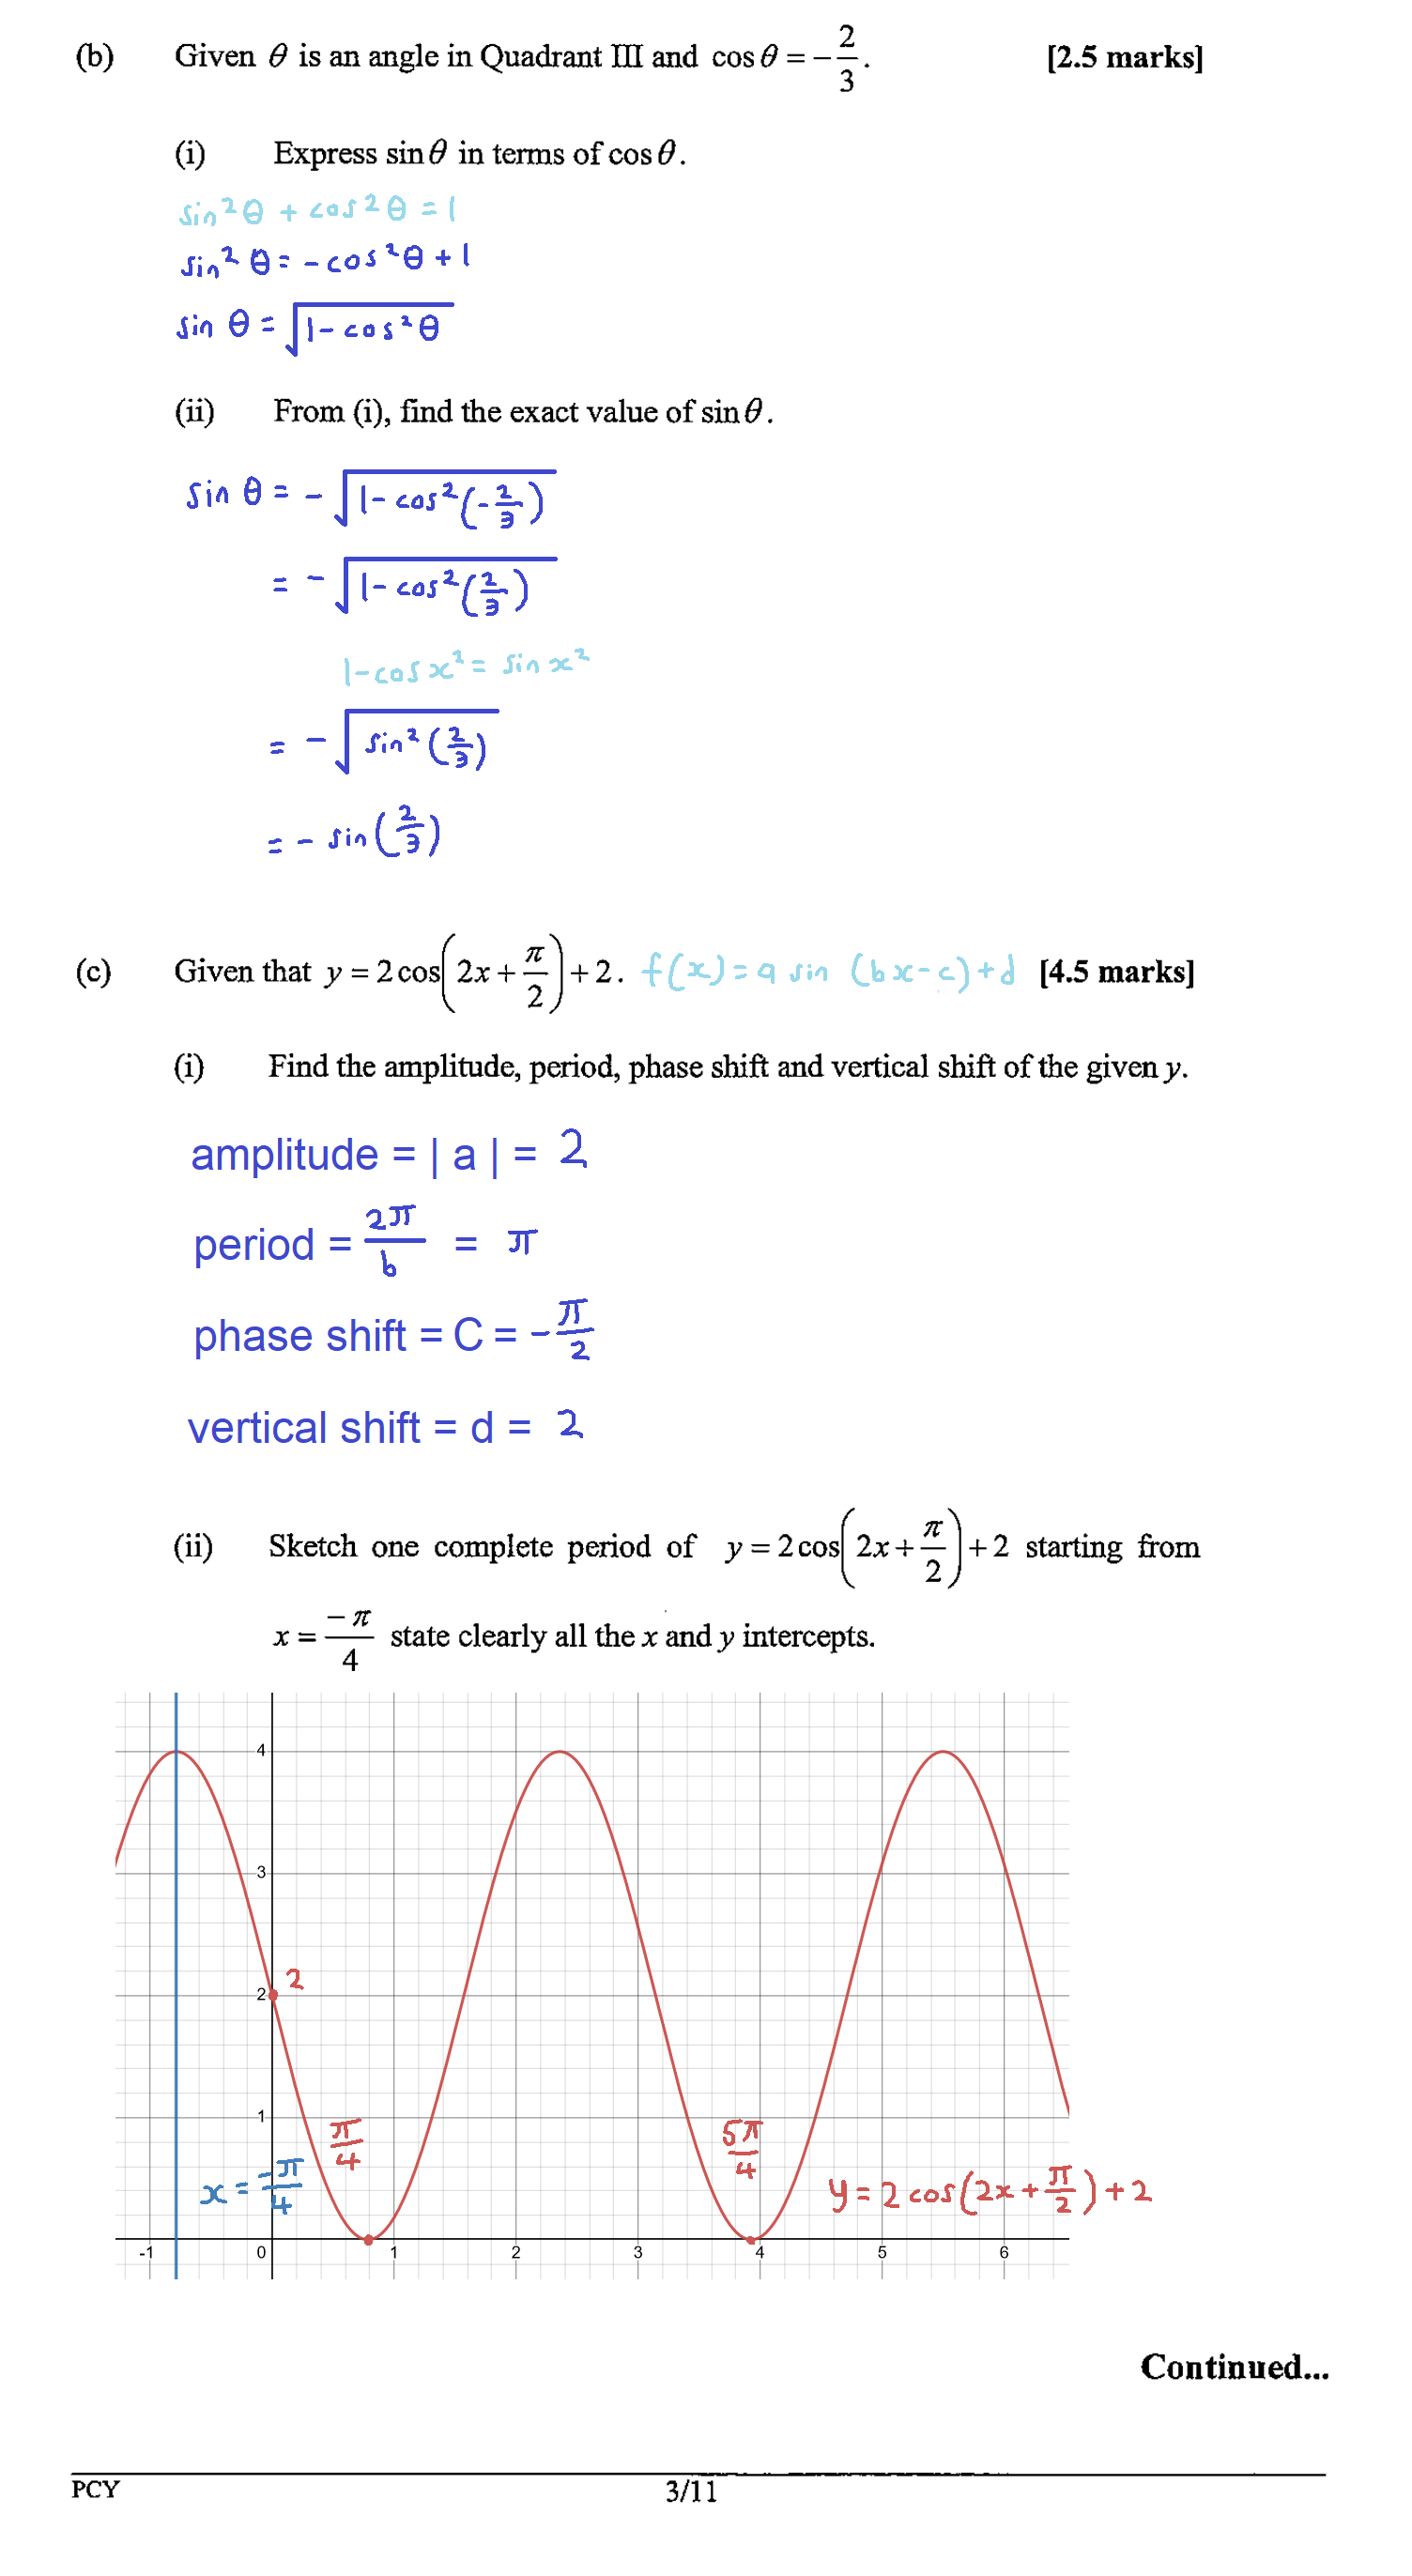 (b) Given θ is an angle in Quadrant III and cos θ = −2/3. [2.5 marks]
(i) Express sin θ in terms of cos θ.
sin²θ + cos²θ = 1
sin²θ = −cos²θ + 1
sin θ = √(1 − cos²θ)
(ii) From (i), find the exact value of sin θ.
sin θ = −√(1 − cos²(−2/3))
= −√(1 − cos²(2/3))
1 − cos x² = sin x²
= −√(sin²(2/3))
= − sin(2/3)
(c) Given that y = 2cos(2x + π/2) + 2. f(x) = a sin (bx − c) + d [4.5 marks]
(i) Find the amplitude, period, phase shift and vertical shift of the given y.
amplitude = | a | = 2
period = 2π/b = π
phase shift = C = −π/2
vertical shift = d = 2
(ii) Sketch one complete period of y = 2cos(2x + π/2) + 2 starting from
x = −π/4 state clearly all the x and y intercepts.
4
3
2 2
1
π/4 5π/4
x = −π/4 y = 2 cos(2x + π/2) + 2
-1 0 1 2 3 4 5 6
Continued...
PCY 3/11